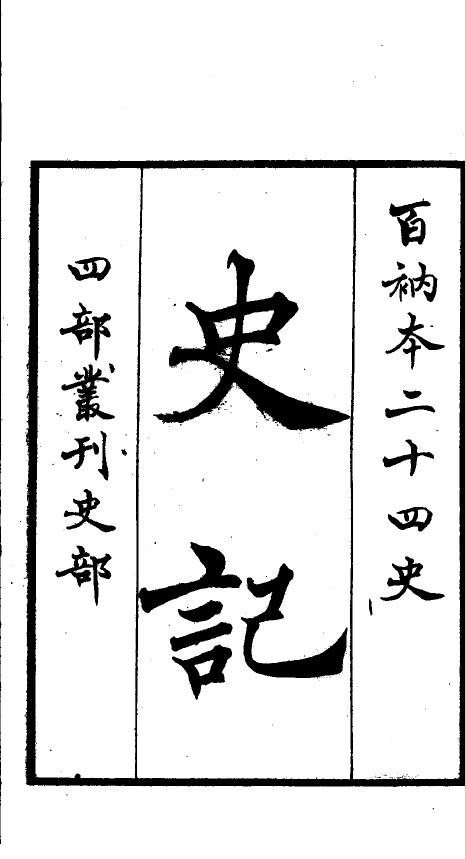 百衲本二十四史
史記
四部叢刊史部